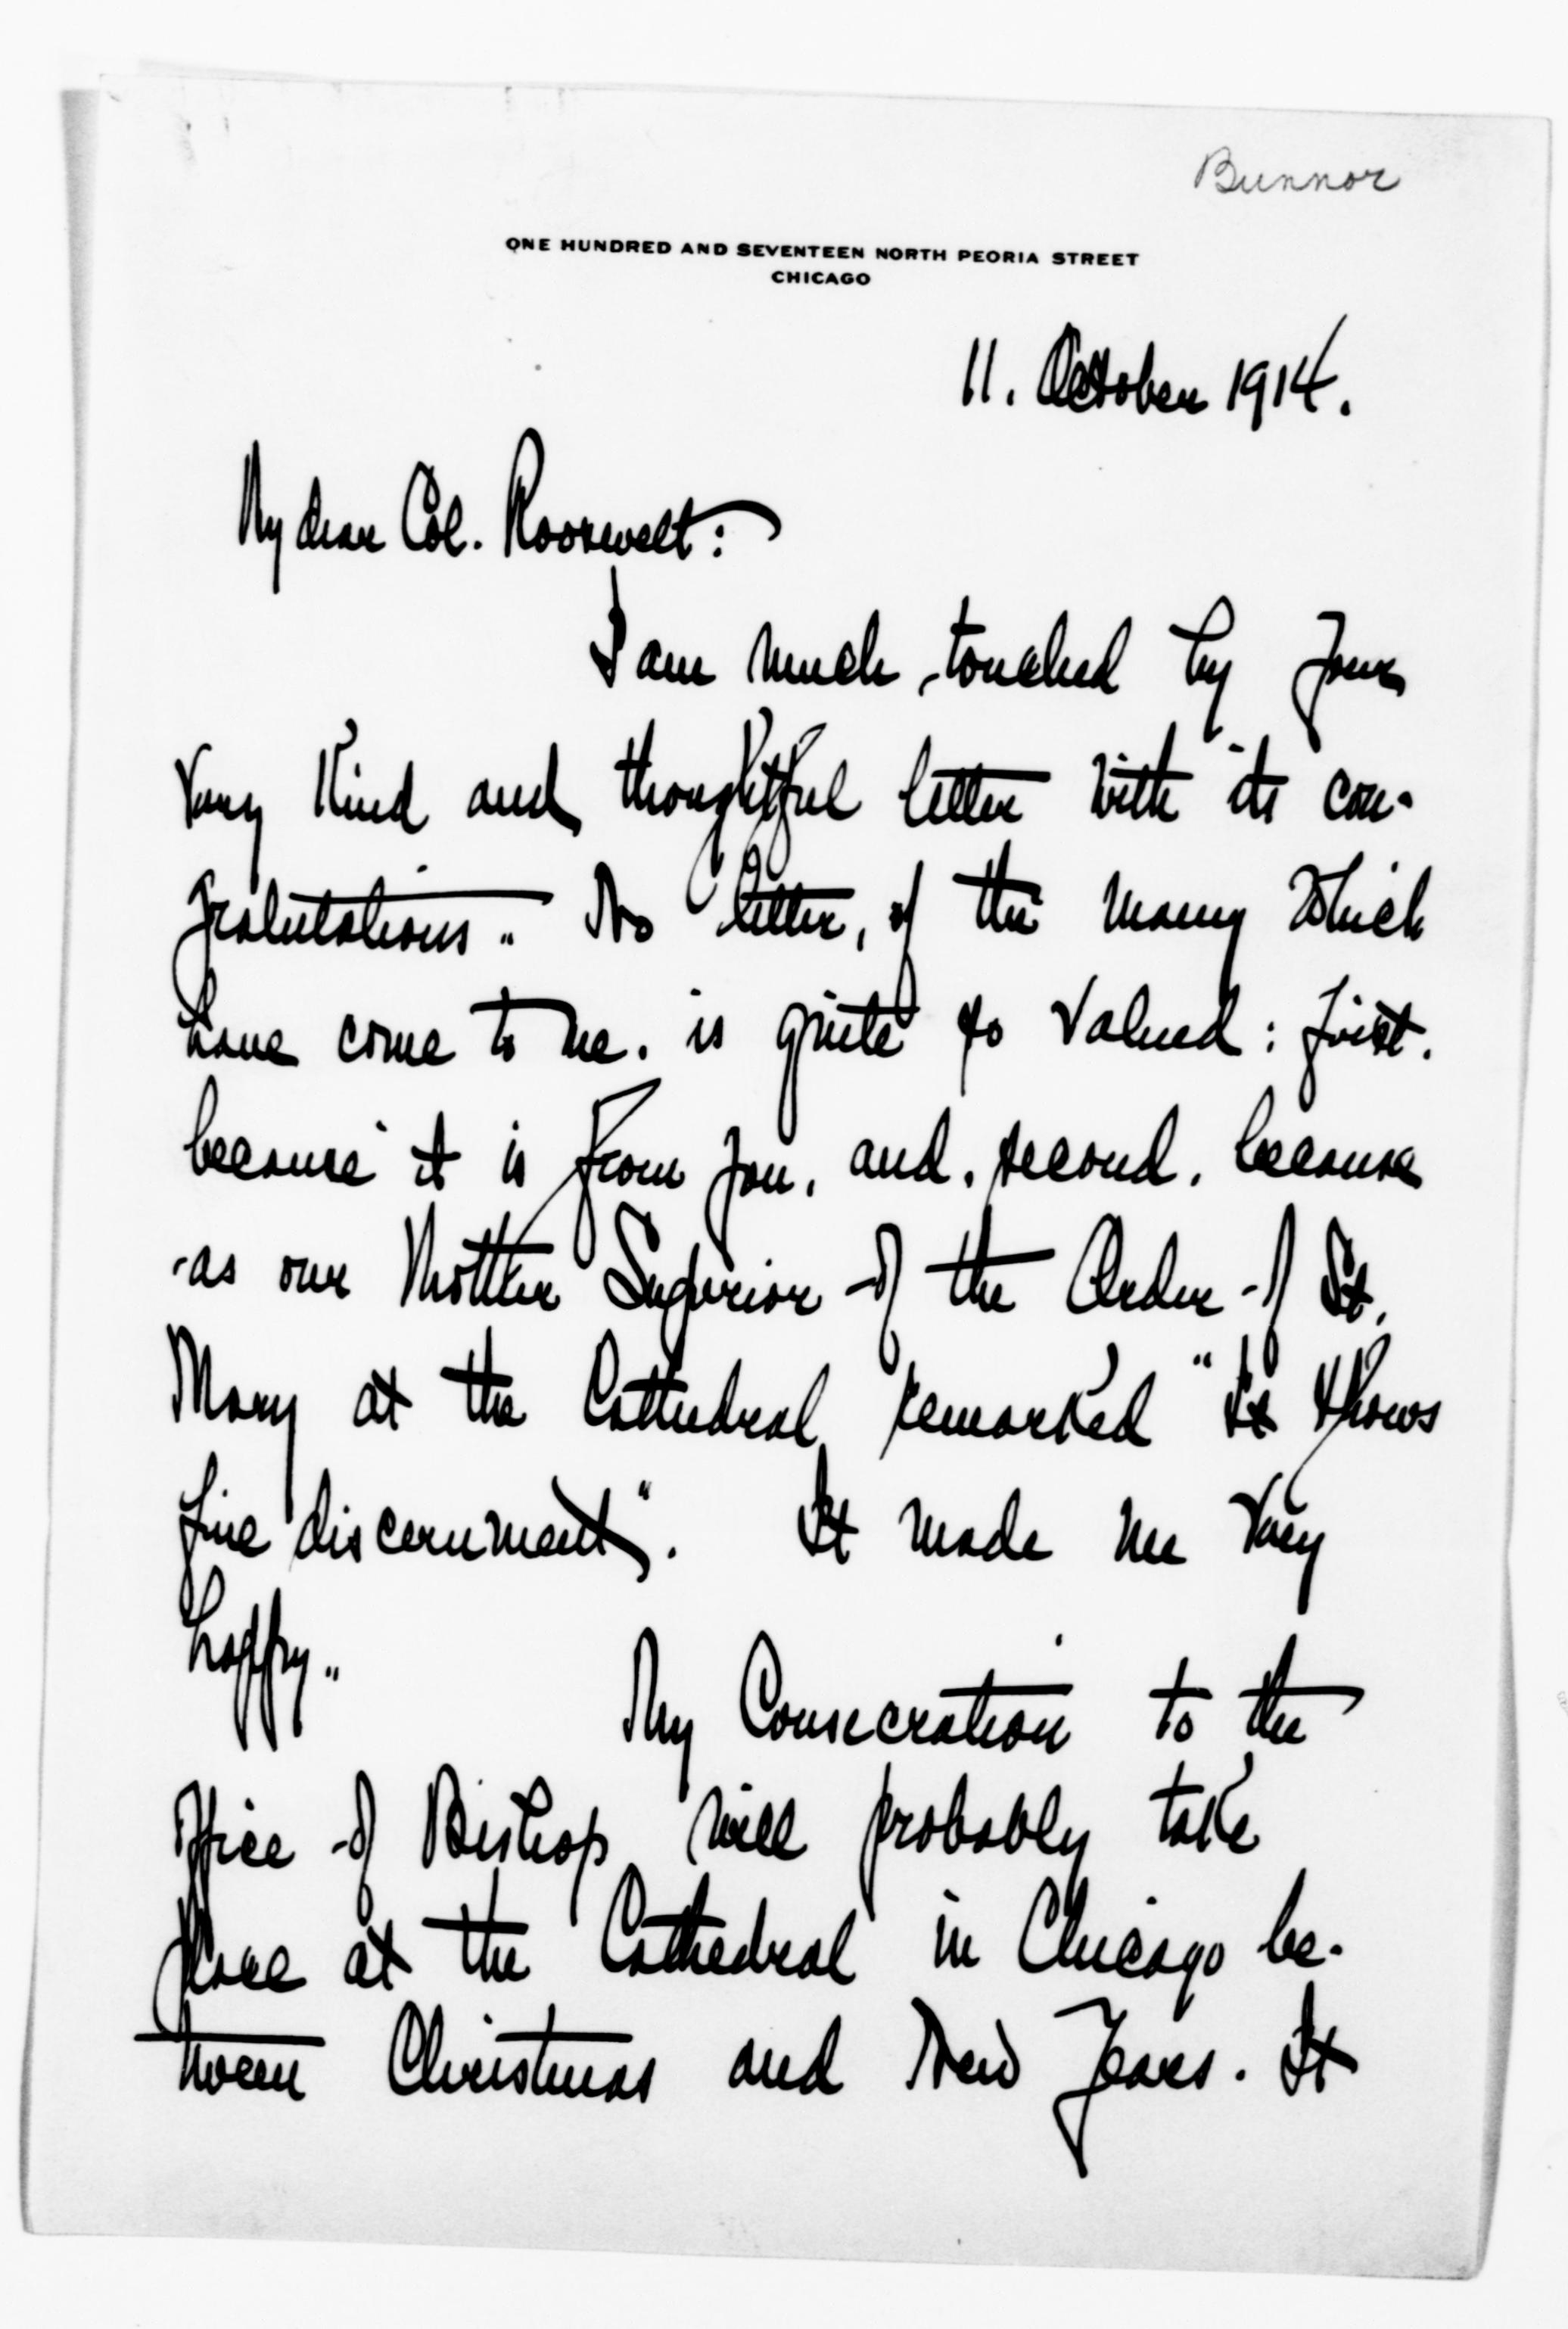 Bunnor
ONE HUNDRED AND SEVENTEEN NORTH PEORIA STREET
CHICAGO
11. October 1914.
My dear Col. Roosevelt:
I am much touched by your
very kind and thoughtful letter with its con-
gratulations. No letter, of the many which
have come to me. is quite so valued: first.
because it is from you, and, second, because
-as our Mother Superior of the Order of St.
Mary at the Cathedral remarked "It shows
fine discernment". It made me very
happy.
My Consecration to the
office of Bishop will probably take
place at the Cathedral in Chicago be-
tween Christmas and New Years. It